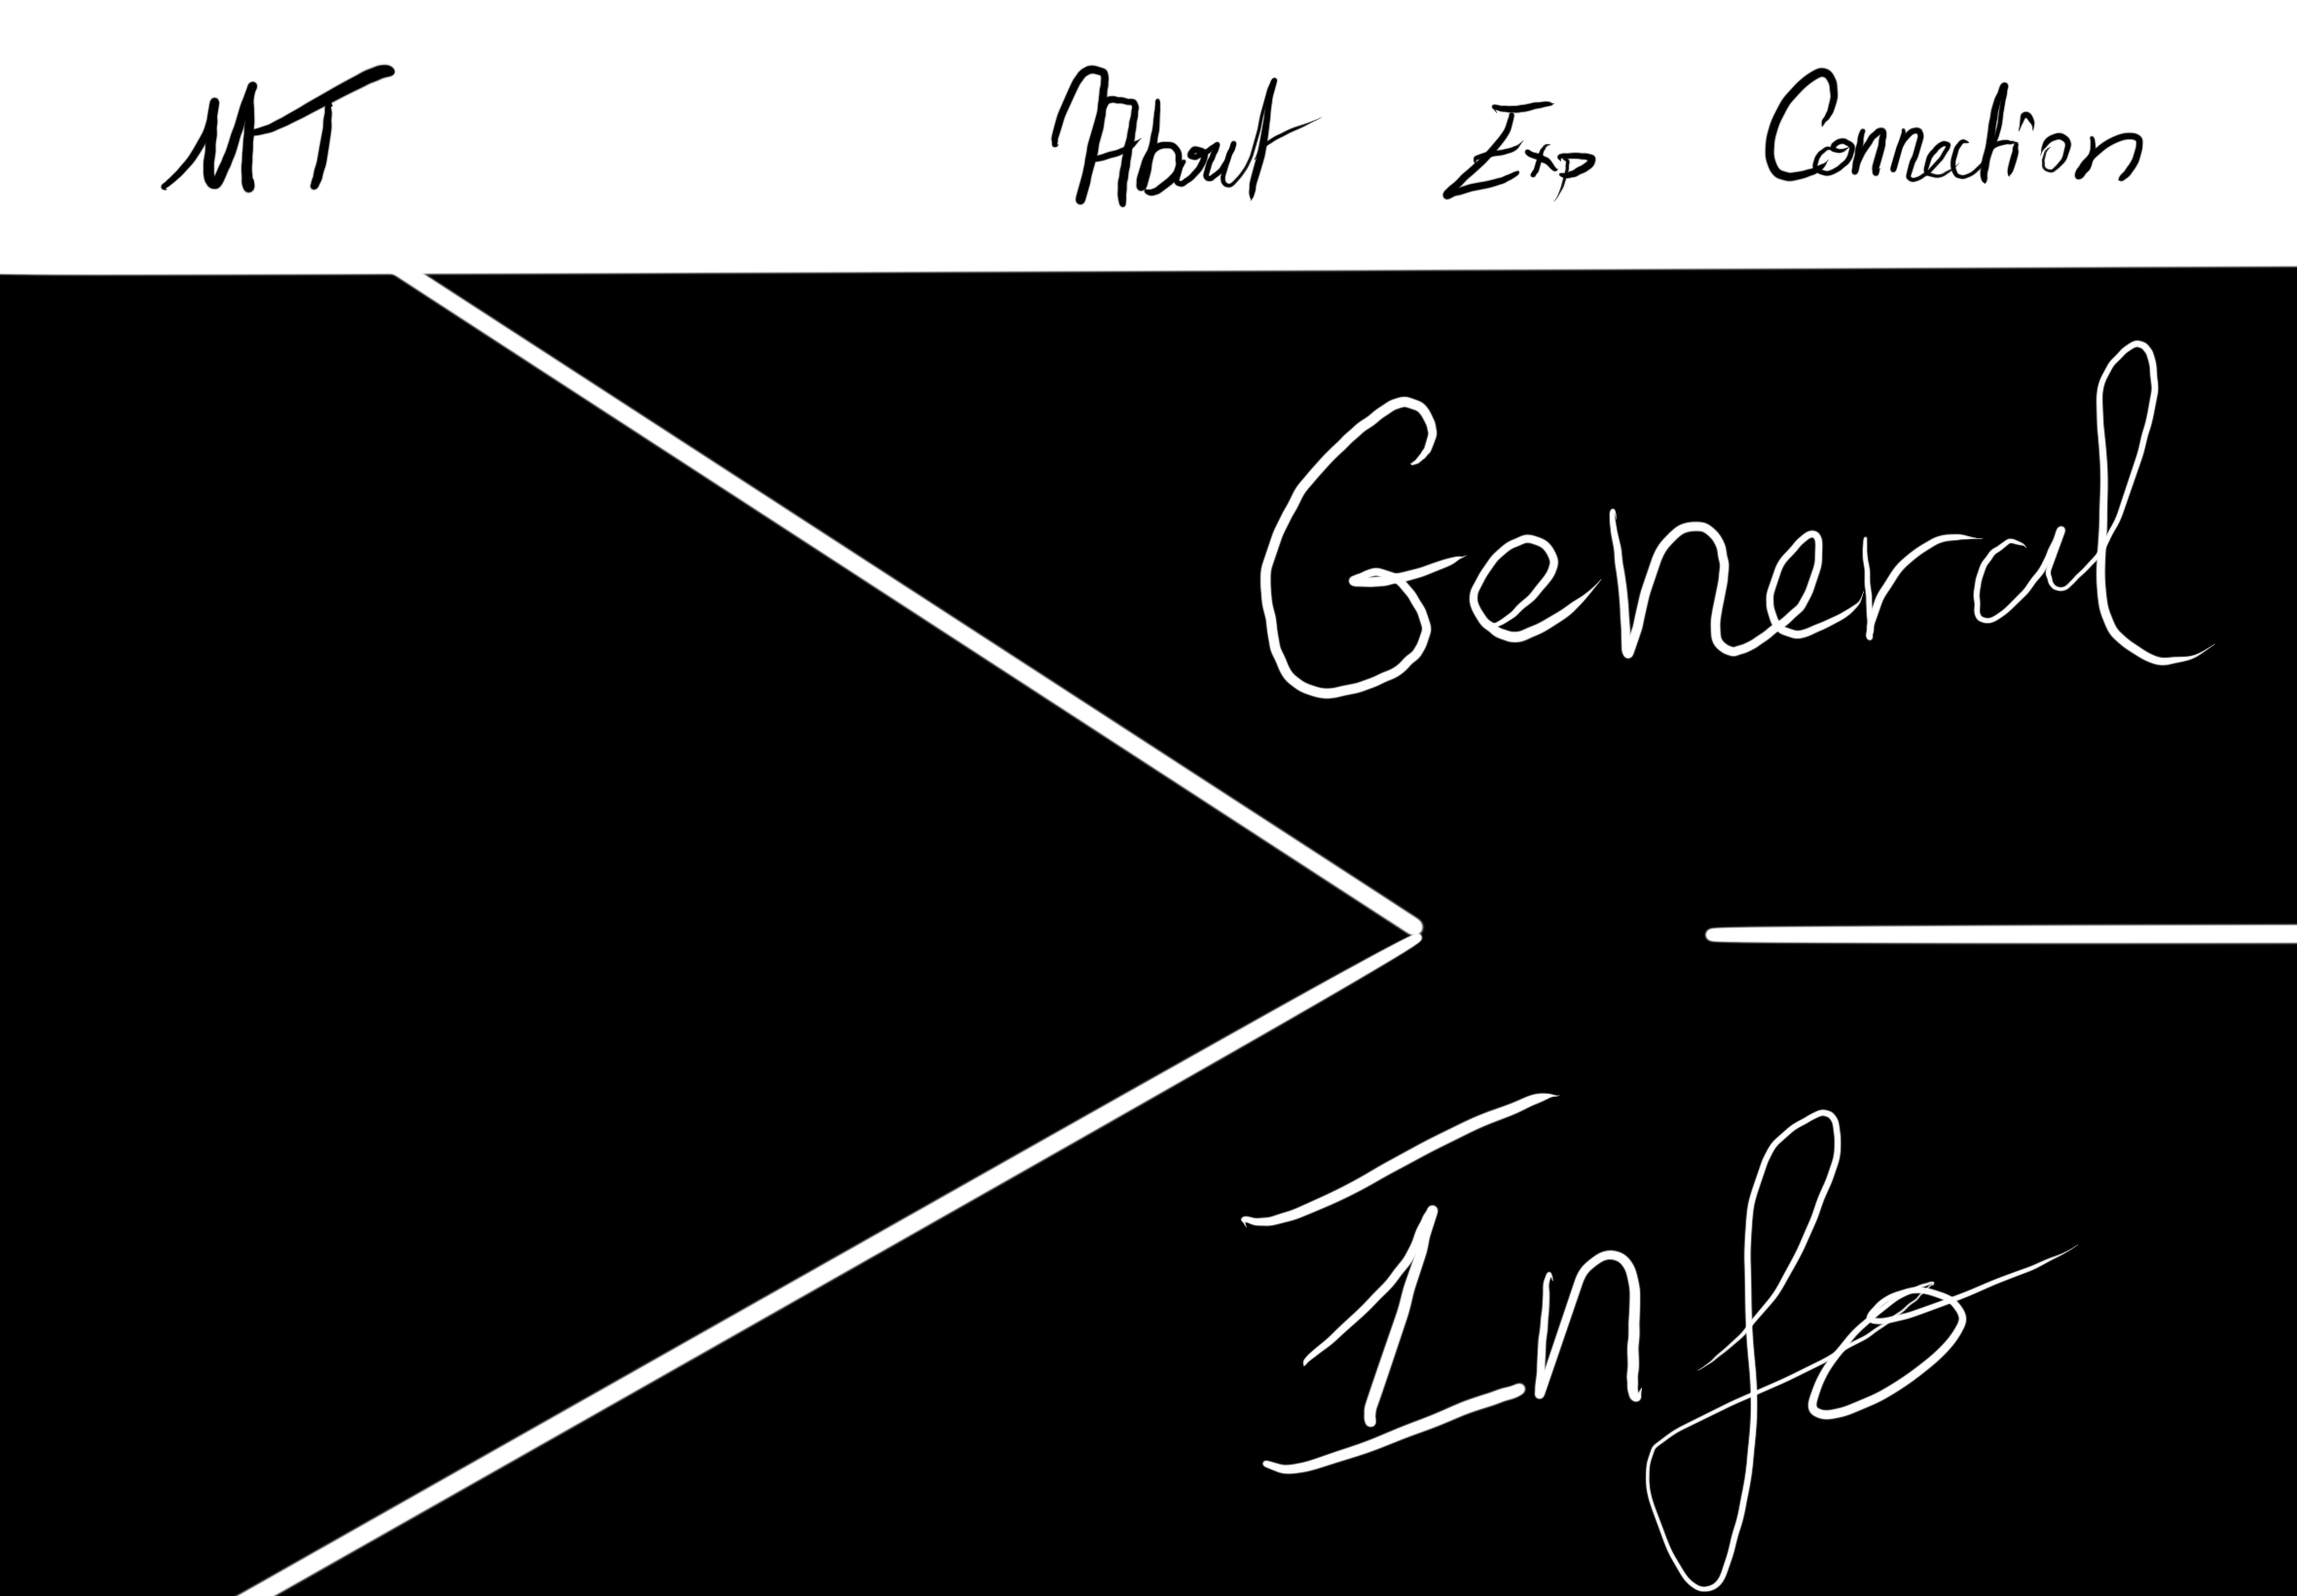 About Exp Connection
General
Info